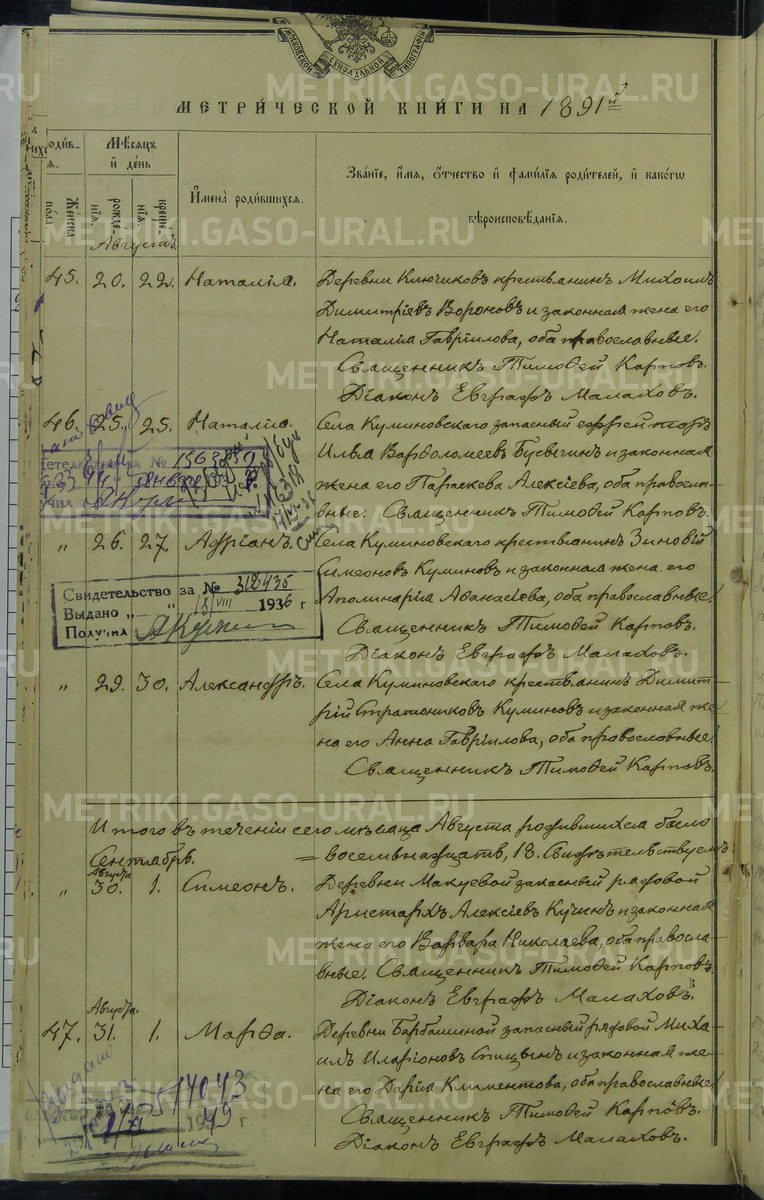 МОСКОВСКОЙ СѴНОДАЛЬНОЙ ТИПОГРАФІИ
МЕТРИ́ЧЕСКОЙ КНИ́ГИ НА 1891й
Мѣсѧцъ и́ де́нь
рожде-нїѧ.
креще-нїѧ.
Же́нска по́ла
И҆мена̀ роди́вшихсѧ.
Зва́нїе, и́мѧ, ѻ҆́тчество и҆ фами́лїѧ роди́телей, и҆ како́гѡ
вѣроисповѣ́данїѧ.
Августъ.
45. 20. 22. Наталія. Деревни Ключиковъ крестьянинъ Михаилъ
Димитріевъ Вороновъ и законная жена его
Наталія Гавріилова, оба православные.
Священникъ Тимоѳей Карповъ.
Діаконъ Евграфъ Малаховъ.
46. 25. 25. Наталія. Села Куминовскаго запасный ефрейторъ
Илья Варѳоломеевъ Бусвегинъ и законная
жена его Параскева Алексіева, оба правосла-
вные. Священникъ Тимоѳей Карповъ.
„ 26. 27. Адріанъ. Села Куминовскаго крестьянинъ Зиновій
Симеоновъ Куминовъ и законная жена его
Аполинарія Аѳанасіева, оба православные.
Священникъ Тимоѳей Карповъ.
Діаконъ Евграфъ Малаховъ.
Свидетельство за № 318435
Выдано „ 13/VIII 1936 г
Получил
„ 29. 30. Александръ. Села Куминовскаго крестьянинъ Димит-
рій Стратониковъ Куминовъ и законная же-
на его Анна Гавріилова, оба православные
Священникъ Тимоѳей Карповъ.
Итого въ теченіи сего мѣсяца Августа родившихся было
= восемьнадцать, 18. Свидѣтельствуемъ
Сентябрь.
Августа
„ 30. 1. Симеонъ. Деревни Макуевой запасный рядовой
Аристархъ Алексіевъ Кучинъ и законная
жена его Варвара Николаева, оба правосла-
вные. Священникъ Тимоѳей Карповъ.
Діаконъ Евграфъ Малаховъ.
Августа.
47. 31. 1. Марѳа. Деревни Барбашиной запасный рядовой Миха-
илъ Иларіоновъ Спицынъ и законная же-
на его Дарія Климентова, оба православные
Священникъ Тимоѳей Карповъ.
Діаконъ Евграфъ Малаховъ.
METRIKI.GASO-URAL.RU